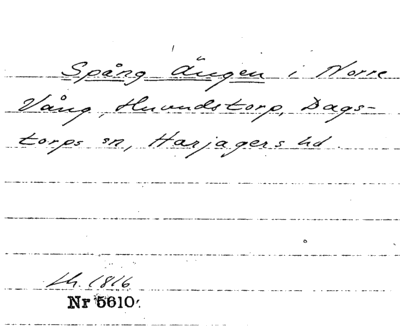 Spång Ängen i Norre
Vång, Hvundstorp, Dags-
torps sn, Harjagers hd.
th. 1816
Nr 5610.